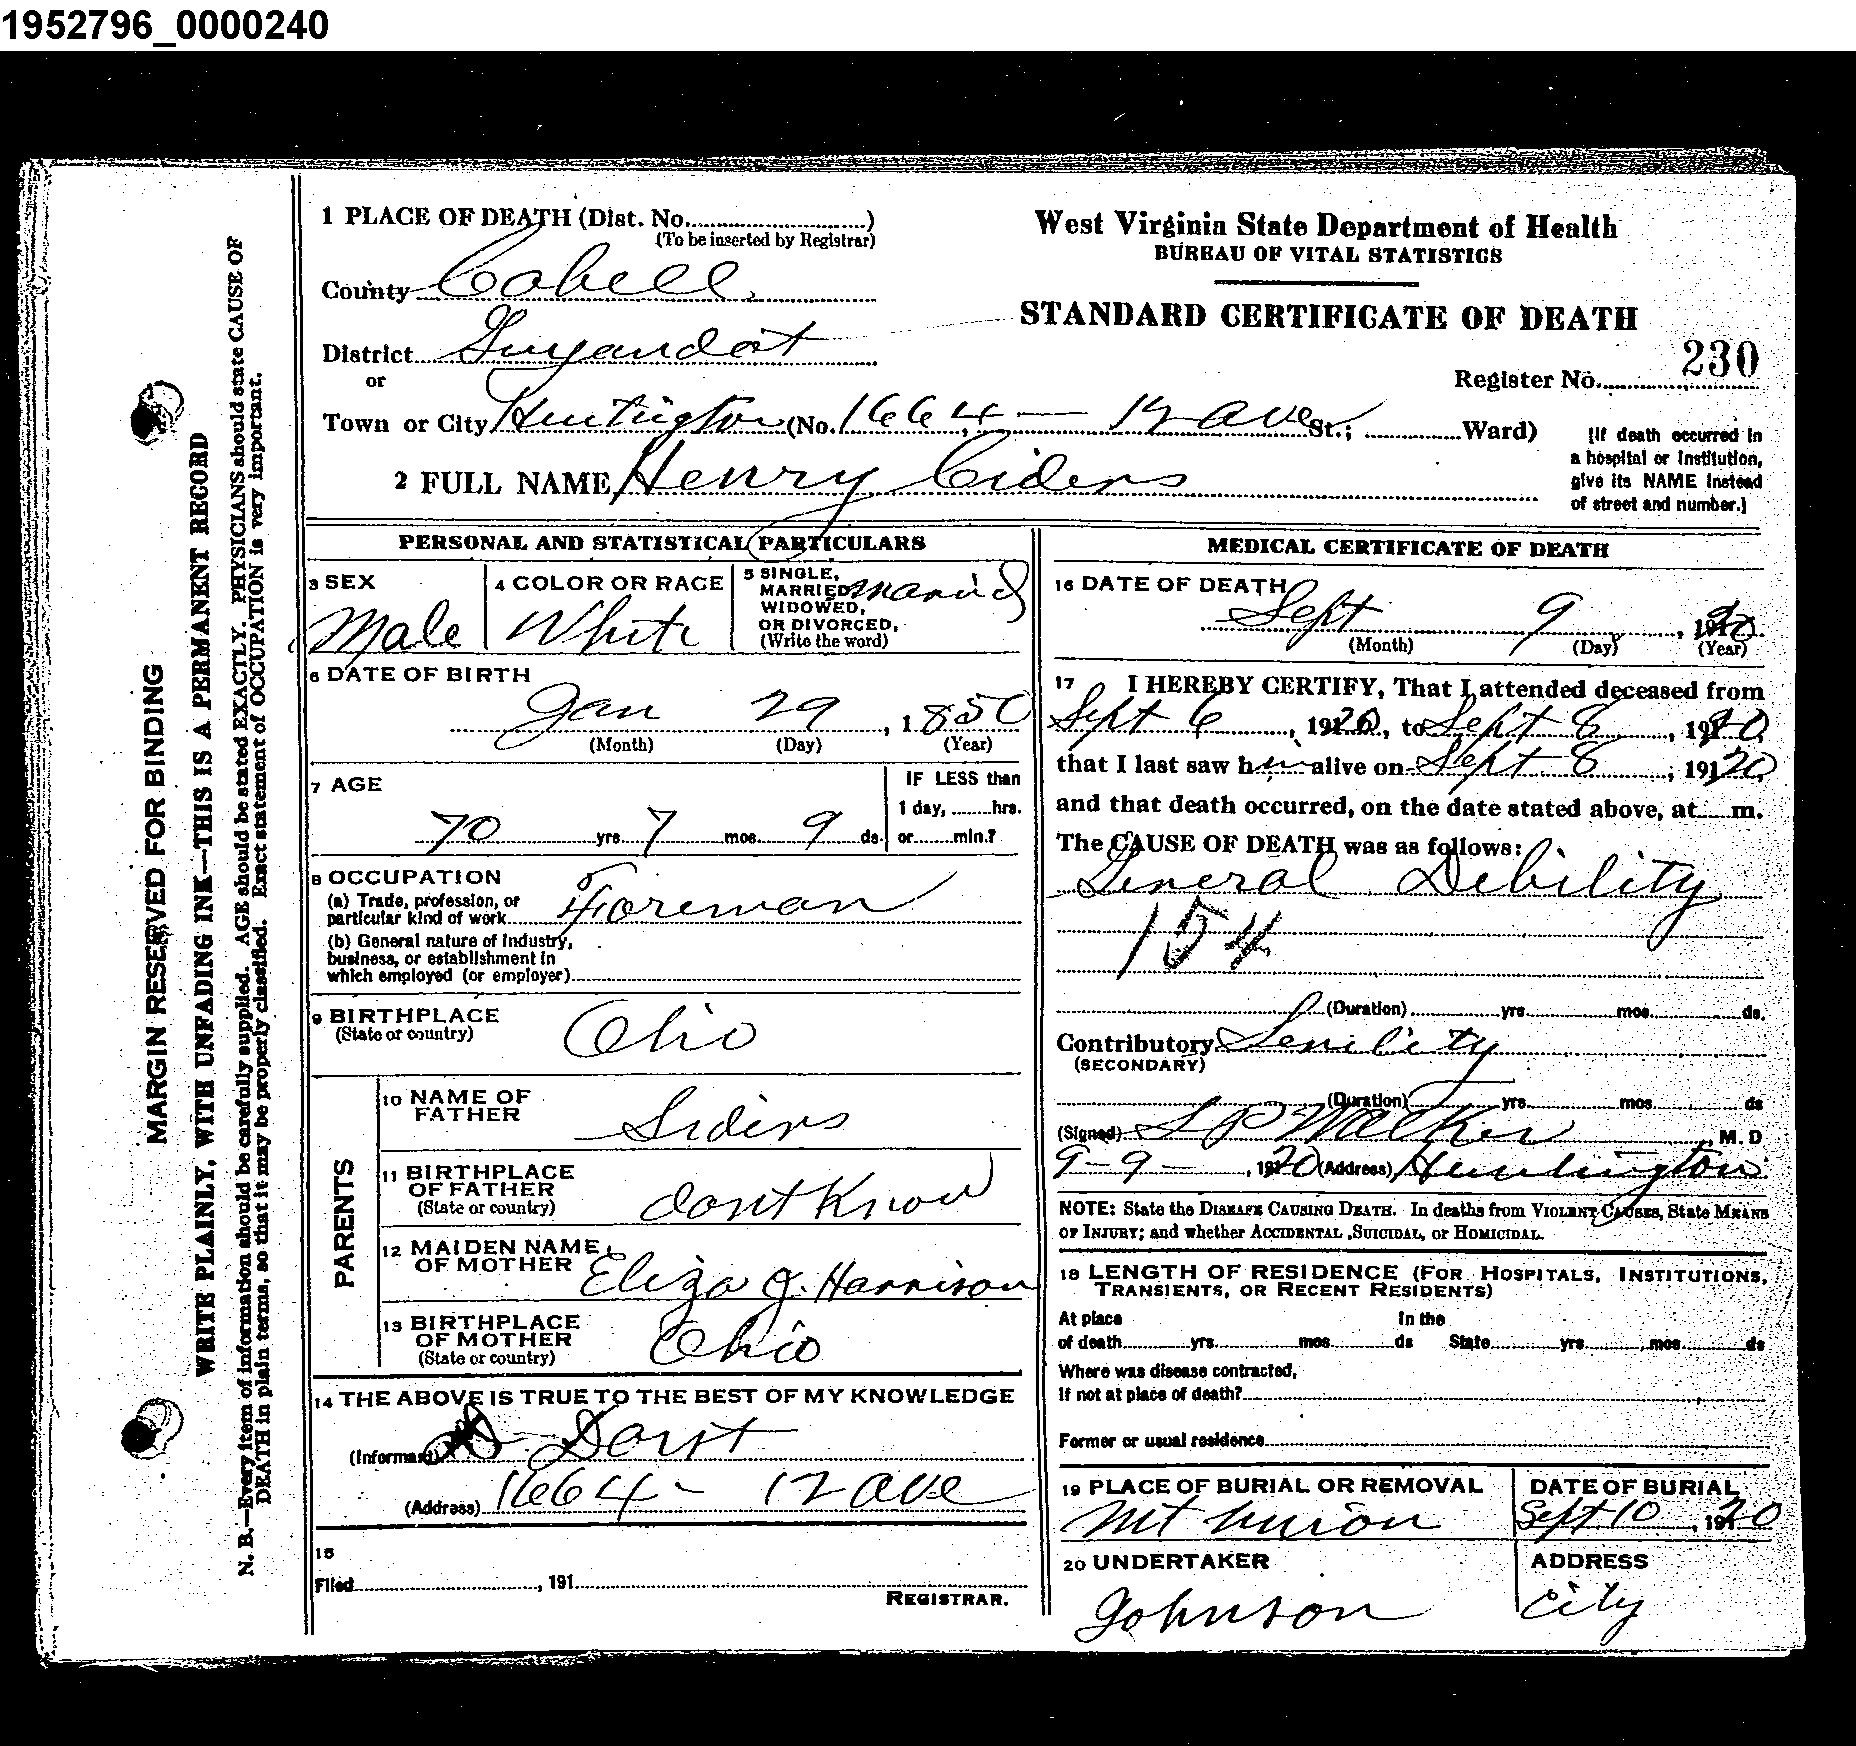 1952796_0000240
MARGIN RESERVED FOR BINDING
WRITE PLAINLY, WITH UNFADING INK—THIS IS A PERMANENT RECORD
N. B.—Every item of information should be carefully supplied. AGE should be stated EXACTLY. PHYSICIANS should state CAUSE OF
DEATH in plain terms, so that it may be properly classified. Exact statement of OCCUPATION is very important.
1 PLACE OF DEATH (Dist. No. )
(To be inserted by Registrar)
County Cabell
District Guyandot
or
Town or City Huntington (No. 1664 — 12 ave St.; Ward)
West Virginia State Department of Health
BUREAU OF VITAL STATISTICS
STANDARD CERTIFICATE OF DEATH
Register No. 230
[If death occurred in
a hospital or institution,
give its NAME instead
of street and number.]
2 FULL NAME Henry Ciders
PERSONAL AND STATISTICAL PARTICULARS
3 SEX
Male
4 COLOR OR RACE
White
5 SINGLE,
MARRIED, Married
WIDOWED,
OR DIVORCED,
(Write the word)
6 DATE OF BIRTH
Jan 29, 1850
(Month) (Day) (Year)
7 AGE
70 yrs 7 mos 9 ds.
IF LESS than
1 day, hrs.
or min.?
8 OCCUPATION
(a) Trade, profession, or
particular kind of work Foreman
(b) General nature of industry,
business, or establishment in
which employed (or employer)
9 BIRTHPLACE
(State or country)
Ohio
PARENTS
10 NAME OF
FATHER
Siders
11 BIRTHPLACE
OF FATHER
(State or country)
dont Know
12 MAIDEN NAME
OF MOTHER Eliza J. Harrison
13 BIRTHPLACE
OF MOTHER
(State or country)
Ohio
14 THE ABOVE IS TRUE TO THE BEST OF MY KNOWLEDGE
(Informant) Dorst
(Address) 1664 - 12 ave
15
Filed , 191
REGISTRAR.
MEDICAL CERTIFICATE OF DEATH
16 DATE OF DEATH
Sept 9, 1920
(Month) (Day) (Year)
17 I HEREBY CERTIFY, That I attended deceased from
Sept 6, 1920, to Sept 8, 1920
that I last saw him alive on Sept 8, 1920
and that death occurred, on the date stated above, at m.
The CAUSE OF DEATH was as follows:
General Debility
154
(Duration) yrs. mos. ds.
Contributory Senility
(SECONDARY)
(Duration) yrs mos ds
(Signed) L P Walker, M. D
9-9-, 1920 (Address) Huntington
NOTE: State the DISEASE CAUSING DEATH. In deaths from VIOLENT CAUSES, State MEANS
OF INJURY; and whether ACCIDENTAL ,SUICIDAL, or HOMICIDAL.
18 LENGTH OF RESIDENCE (FOR HOSPITALS, INSTITUTIONS,
TRANSIENTS, OR RECENT RESIDENTS)
At place In the
of death yrs mos ds State yrs mos ds
Where was disease contracted,
If not at place of death?
Former or usual residence
19 PLACE OF BURIAL OR REMOVAL
Mt union
DATE OF BURIAL
Sept 10, 1920
20 UNDERTAKER
Johnson
ADDRESS
City